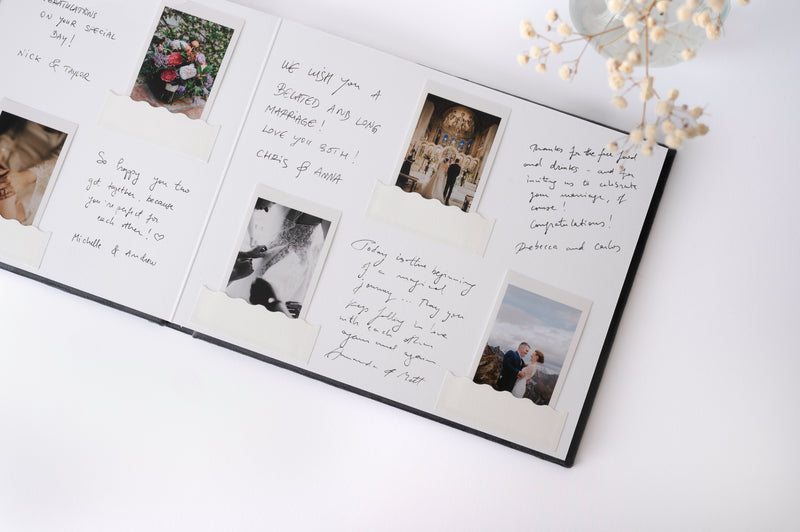 CONGRATULATIONS
ON YOUR SPECIAL
DAY!
NICK & TAYLOR
So happy you two
got together, because
you're perfect for
each other! ♡
Michelle & Andrew
WE WISH YOU A
BELATED AND LONG
MARRIAGE!
LOVE YOU BOTH!
CHRIS & ANNA
Today is the beginning
of a magical
journey... May you
keep falling in love
with each other
again and again
Amanda & Matt
Thanks for the free food
and drinks - and for
inviting us to celebrate
your marriage, of
course!
Congratulations!
Rebecca and Carlos